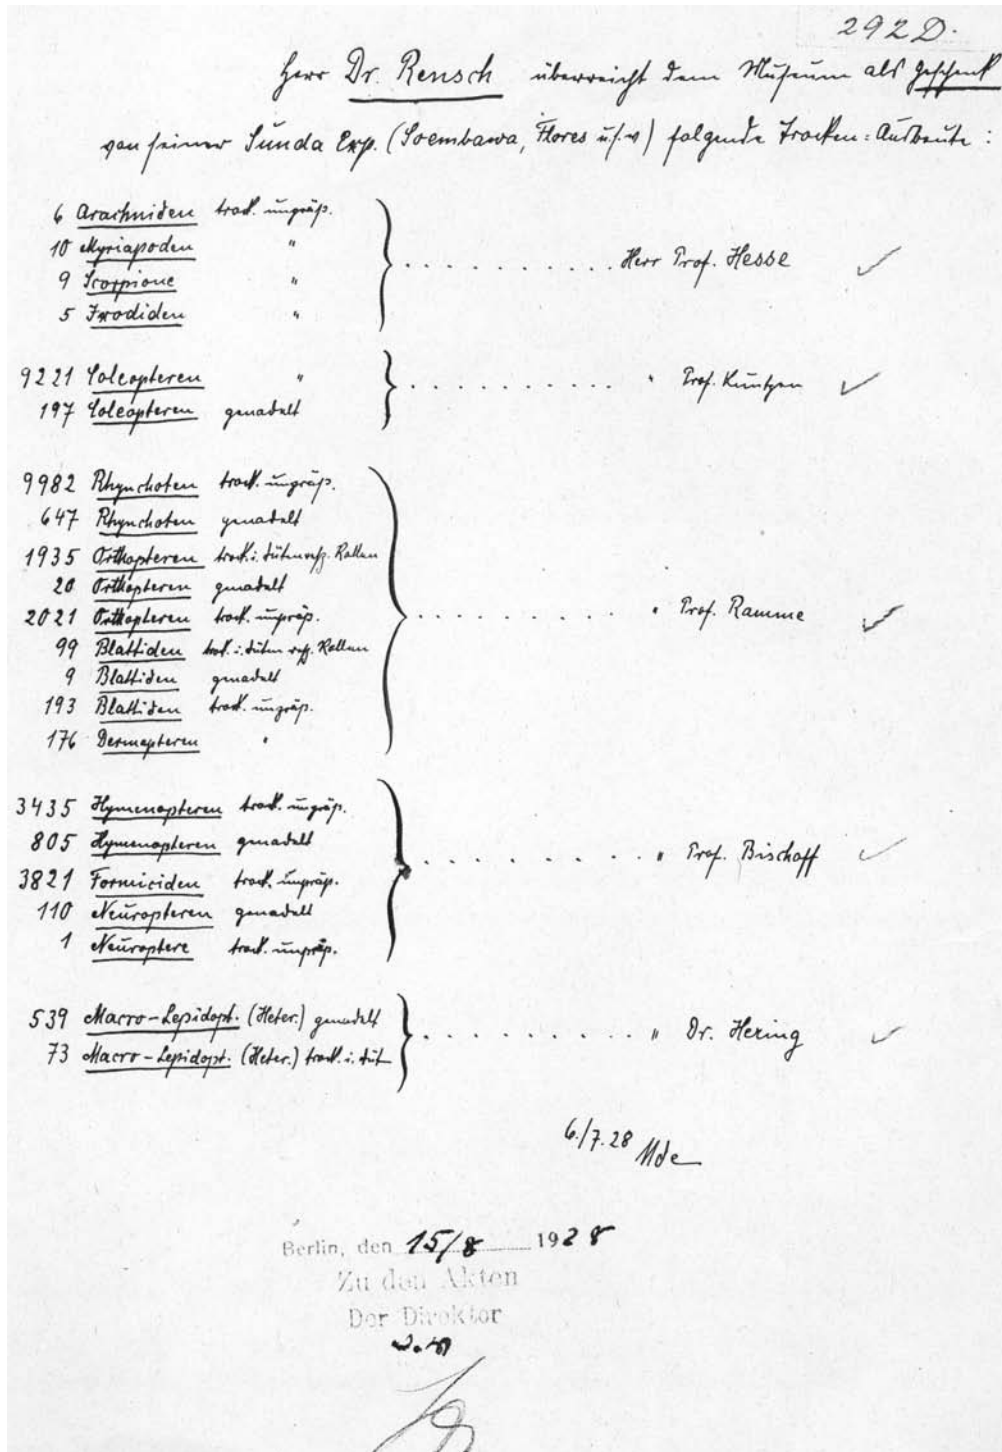 292 D.
Herr Dr. Rensch überreicht dem Museum als Geschenk
von seiner Sunda Exp. (Soembawa, Flores u.s.w) folgende Trocken=Ausbeute:
6 Arachniden trock. ungräp.
10 Myriapoden "
9 Scorpione " . . . . . . . . . . Herr Prof. Hesse
5 Ixodiden "
9221 Coleopteren " . . . . . . . . . . " Prof. Kuntzen
197 Coleopteren genadelt
9982 Rhynchoten trock. ungräp.
647 Rhynchoten genadelt
1935 Orthopteren trock. i. Düten resp. Rollen
20 Orthopteren genadelt
2021 Orthopteren trock. ungräp. . . . . . . . . . . " Prof. Ramme
99 Blattiden trock. i. Düten resp. Rollen
9 Blattiden genadelt
193 Blattiden trock. ungräp.
176 Dermapteren "
3435 Hymenopteren trock. ungräp.
805 Hymenopteren genadelt . . . . . . . . . . " Prof. Bischoff
3821 Formiciden trock. ungräp.
110 Neuropteren genadelt
1 Neuroptere trock. ungräp.
539 Macro-Lepidopt. (Heter.) genadelt . . . . . . . . . . " Dr. Hering
73 Macro-Lepidopt. (Heter.) trock. i. Düt
6./7.28 Mde
Berlin, den 15/8 1928
Zu den Akten
Der Direktor